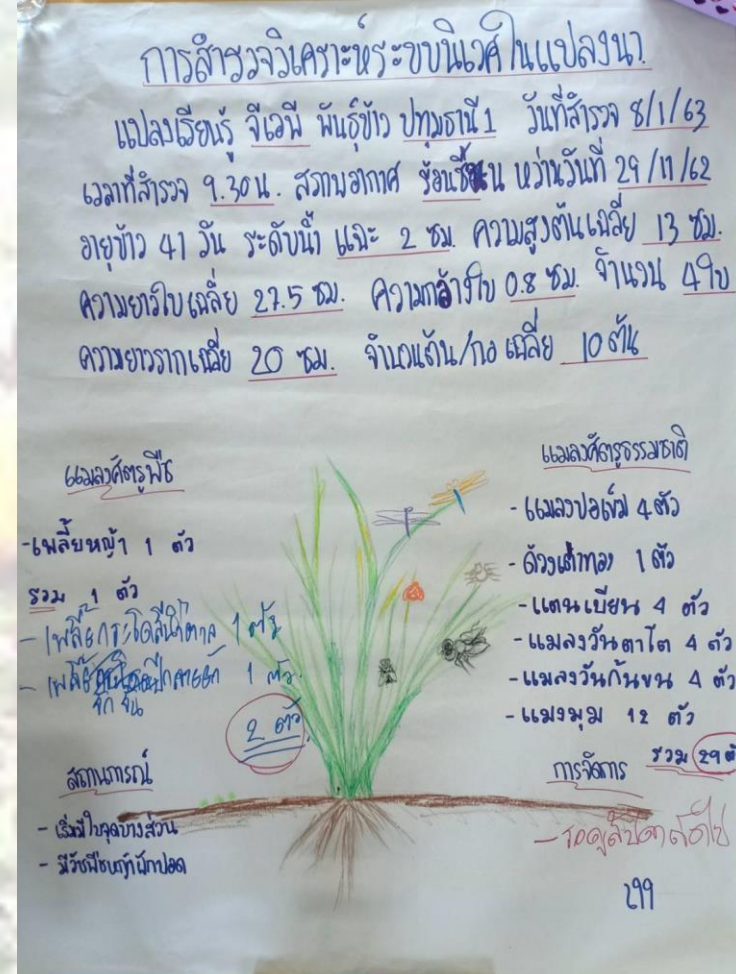 การสำรวจวิเคราะห์ระบบนิเวศในแปลงนา
แปลงเรียนรู้ จีเอพี พันธุ์ข้าว ปทุมธานี 1 วันที่สำรวจ 8/1/63
เวลาที่สำรวจ 9.30 น. สภาพอากาศ ร้อนชื้น หว่านวันที่ 29/11/62
อายุข้าว 41 วัน ระดับน้ำ แฉะ 2 ซม. ความสูงต้นเฉลี่ย 13 ซม.
ความยาวใบเฉลี่ย 27.5 ซม. ความกว้างใบ 0.8 ซม. จำนวน 4 ใบ
ความยาวรากเฉลี่ย 20 ซม. จำนวนต้น/กอ เฉลี่ย 10 ต้น
แมลงศัตรูพืช
-เพลี้ยหญ้า 1 ตัว
รวม 1 ตัว
- เพลี้ยกระโดดสีน้ำตาล 1 ตัว
- เพลี้ยจักจั่นปีกลายหยัก 1 ตัว
2 ตัว
แมลงศัตรูธรรมชาติ
- แมลงปอเข็ม 4 ตัว
- ด้วงเต่าทอง 1 ตัว
- แตนเบียน 4 ตัว
- แมลงวันตาโต 4 ตัว
- แมลงวันก้นขน 4 ตัว
- แมงมุม 12 ตัว
รวม 29 ตั
สถานการณ์
- เริ่มมีใบจุดบางส่วน
- มีวัชพืชหญ้าผักปอด
การจัดการ
- รอดูสัปดาห์ต่อไป